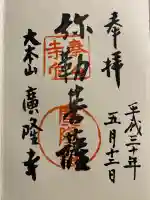 奉拝
平成三十年
五月十三日
弥勒菩薩
大本山 廣隆寺